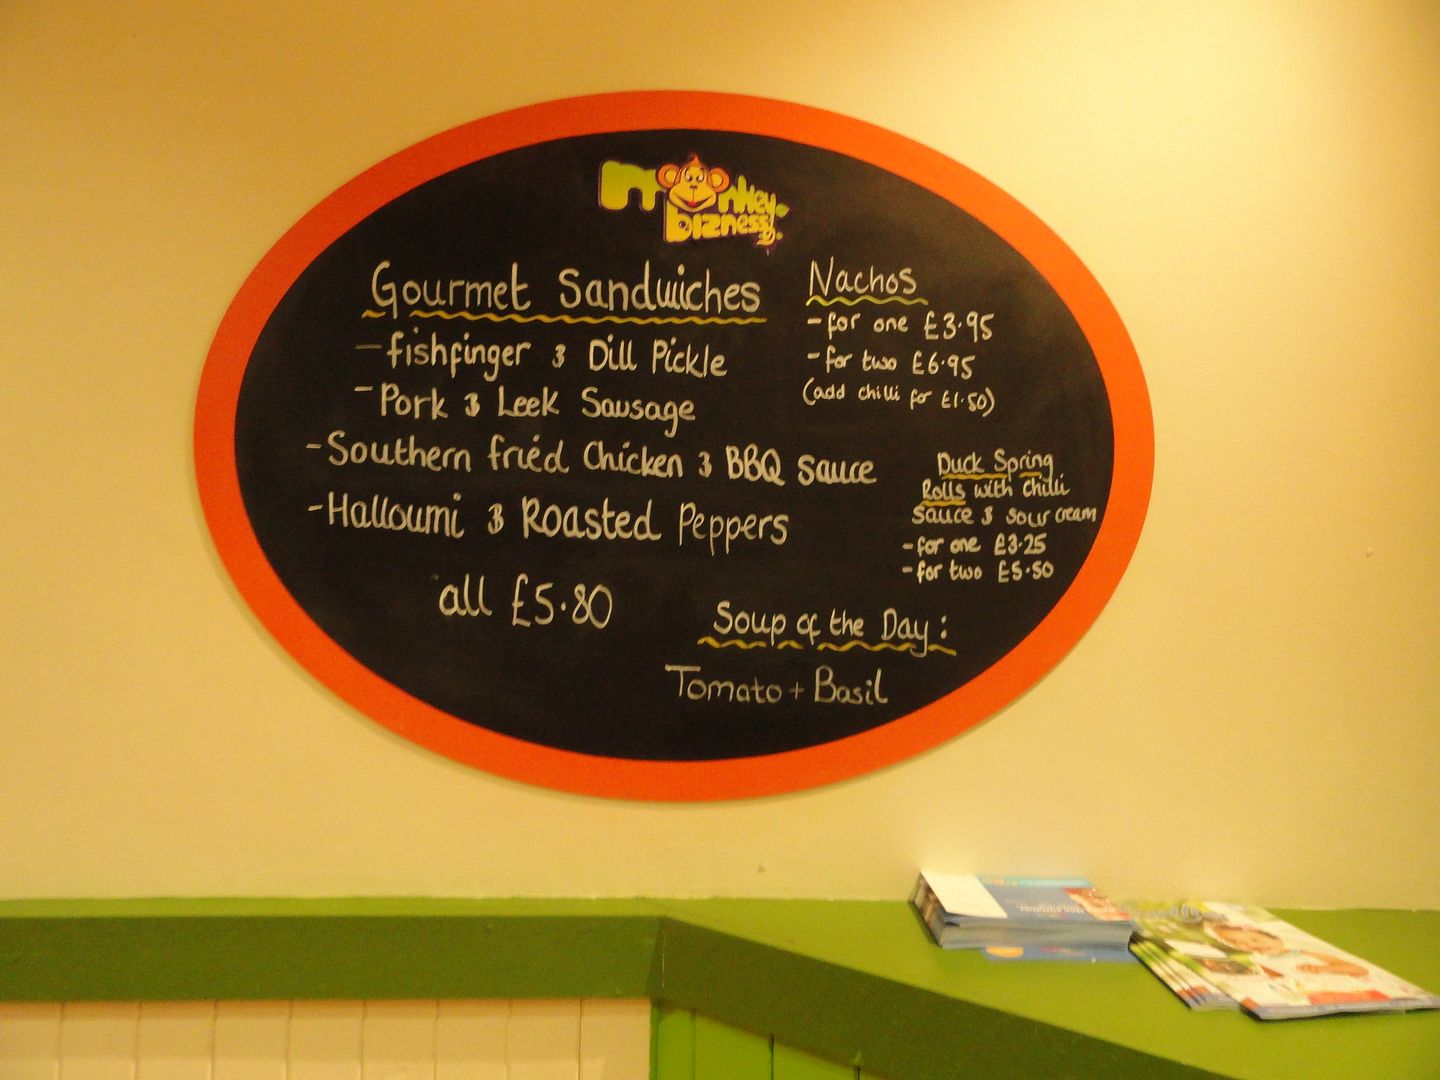 monkey
bizness
Gourmet Sandwiches
- fishfinger & Dill Pickle
- Pork & Leek Sausage
- Southern fried Chicken & BBQ Sauce
- Halloumi & Roasted Peppers
all £5.80
Nachos
- for one £3.95
- for two £6.95
(add chilli for £1.50)
Duck Spring
Rolls with chilli
sauce & sour cream
- for one £3.25
- for two £5.50
Soup of the Day:
Tomato + Basil